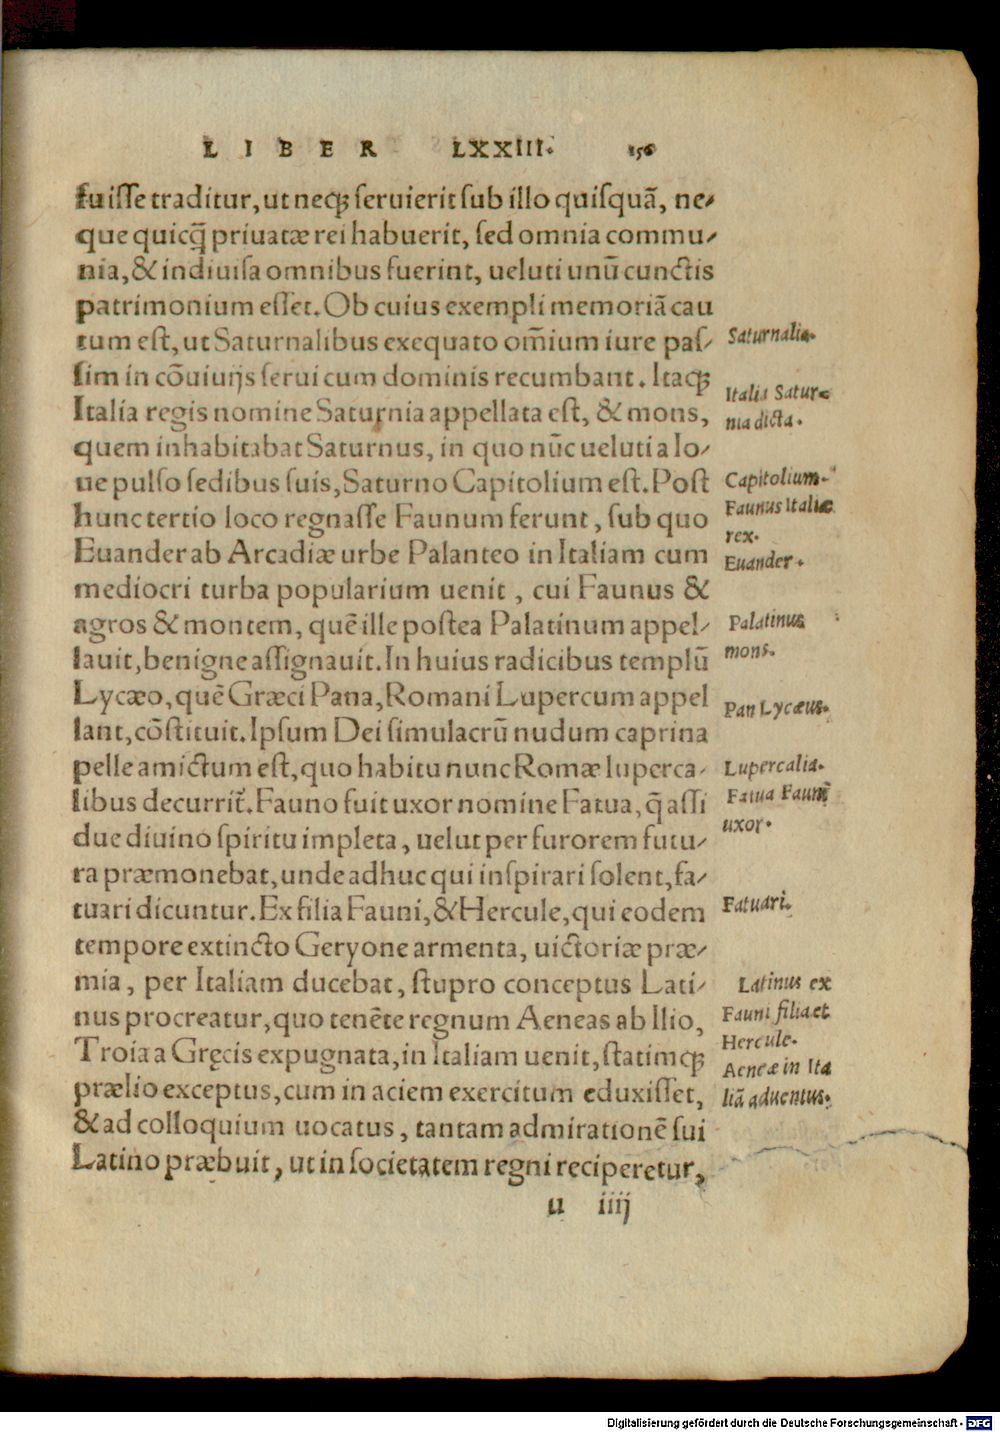 LIBER LXXIII. 156
fuiſſe traditur, ut neqꝫ ſeruierit ſub illo quiſquã, ne⸗
que quicq̃ priuatæ rei habuerit, ſed omnia commu⸗
nia, & indiuiſa omnibus fuerint, ueluti unũ cunctis
patrimonium eſſet. Ob cuius exempli memoriã cau
tum eſt, ut Saturnalibus exequato om̃ium iure paſ⸗
ſim in cõuiuijs ſerui cum dominis recumbant. Itaqꝫ
Italia regis nomine Saturnia appellata eſt, & mons,
quem inhabitabat Saturnus, in quo nũc ueluti a Io⸗
ue pulſo ſedibus ſuis, Saturno Capitolium eſt. Poſt
hunc tertio loco regnaſſe Faunum ferunt, ſub quo
Euander ab Arcadiæ urbe Palanteo in Italiam cum
mediocri turba popularium uenit, cui Faunus &
agros & montem, quẽ ille poſtea Palatinum appel⸗
lauit, benigne aſſignauit. In huius radicibus templũ
Lycæo, quẽ Græci Pana, Romani Lupercum appel
lant, cõſtituit. Ipſum Dei ſimulacrũ nudum caprina
pelle amictum eſt, quo habitu nunc Romæ luperca⸗
libus decurrit᷑. Fauno fuit uxor nomine Fatua, q̃ aſſi
due diuino ſpiritu impleta, uelut per furorem futu⸗
ra præmonebat, unde adhuc qui inſpirari ſolent, fa⸗
tuari dicuntur. Ex filia Fauni, & Hercule, qui eodem
tempore extincto Geryone armenta, uictoriæ præ⸗
mia, per Italiam ducebat, ſtupro conceptus Lati⸗
nus procreatur, quo tenẽte regnum Aeneas ab Ilio,
Troia a Gręcis expugnata, in Italiam uenit, ſtatimqꝫ
prælio exceptus, cum in aciem exercitum eduxiſſet,
& ad colloquium uocatus, tantam admirationẽ ſui
Latino præbuit, ut in ſocietatem regni reciperetur,
u iiij
Saturnalia.
Italia Satur⸗
nia dicta.
Capitolium.
Faunus Italiæ
rex.
Euander.
Palatinus
mons.
Pan Lycæus.
Lupercalia.
Fatua Fauni
uxor.
Fatuari.
Latinus ex
Fauni filia et
Hercule.
Aeneæ in Ita
liã aduentus.
Digitalisierung gefördert durch die Deutsche Forschungsgemeinschaft - DFG